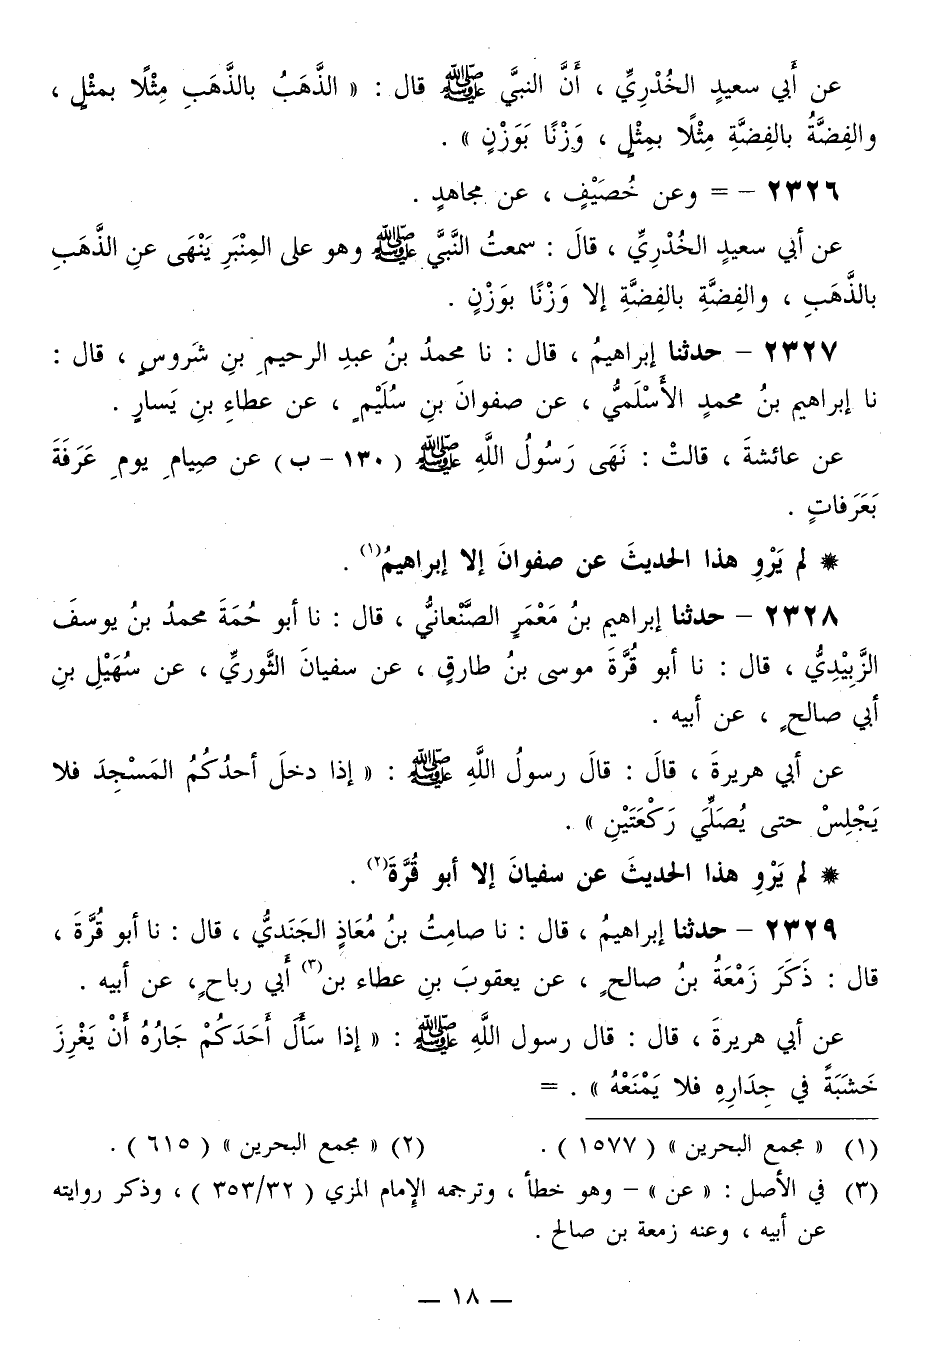 عن أَبي سعيدٍ الخُدْرِيِّ ، أَنَّ النبيَّ ﷺ قال : « الذَّهَبُ بالذَّهَبِ مِثْلًا بمثْلٍ ،
والفِضَّةُ بالفِضَّةِ مِثْلًا بمِثْلٍ ، وَزْنًا بَوَزْنٍ » .
٢٣٢٦ – = وعن خُصَيْفٍ ، عن مجاهدٍ .
عن أبي سعيد الخُدْرِيِّ ، قالَ : سمعتُ النَّبيَّ ﷺ وهو على المِنْبَرِ يَنْهَى عنِ الذَّهَبِ
بالذَّهَبِ ، والفِضَّةِ بالفِضَّةِ إلا وَزْنًا بوَزْنٍ .
٢٣٢٧ – حدثنا إبراهيمُ ، قال : نا محمدُ بنُ عبدِ الرحيمِ بنِ شَروسٍ ، قال :
نا إبراهيم بنُ محمدٍ الأَسْلَميُّ ، عن صفوانَ بنِ سُلَيْمٍ ، عن عطاءِ بنِ يَسارٍ .
عن عائشةَ ، قالتْ : نَهَى رَسُولُ اللَّهِ ﷺ ( ١٣٠ – ب ) عن صيامِ يومِ عَرَفَةَ
بَعَرَفاتٍ .
* لم يَرْوِ هذا الحديثَ عن صفوانَ إلا إبراهيمُ(١) .
٢٣٢٨ – حدثنا إبراهيم بنُ مَعْمَرٍ الصَّنْعانيُّ ، قال : نا أبو حُمَةَ محمدُ بنُ يوسفَ
الزَّبِيْدِيُّ ، قال : نا أبو قُرَّةَ موسى بنُ طارقٍ ، عن سفيانَ الثَّوريِّ ، عن سُهَيْلِ بنِ
أبي صالحٍ ، عن أبيه .
عن أبي هريرةَ ، قالَ : قالَ رسولُ اللَّهِ ﷺ : « إذا دخلَ أحدُكُمُ المَسْجِدَ فلا
يَجْلِسْ حتى يُصَلِّيَ رَكْعَتَيْنِ » .
* لم يَرْوِ هذا الحديثَ عن سفيانَ إلا أبو قُرَّةَ(٢) .
٢٣٢٩ – حدثنا إبراهيمُ ، قال : نا صامِتُ بنُ مُعَاذٍ الجَنَديُّ ، قال : نا أبو قُرَّةَ ،
قال : ذَكَرَ زَمْعَةُ بنُ صالحٍ ، عن يعقوبَ بنِ عطاء بن(٣) أَبي رباحٍ ، عن أبيه .
عن أبي هريرةَ ، قال : قال رسول اللَّهِ ﷺ : « إذا سَأَلَ أَحَدَكُمْ جَارُهُ أَنْ يَغْرِزَ
خَشَبَةً في جِدَارِهِ فلا يَمْنَعْهُ » . =
(١) « مجمع البحرين » ( ١٥٧٧ ) . (٢) « مجمع البحرين » ( ٦١٥ ) .
(٣) في الأصل : « عن » – وهو خطأ ، وترجمه الإمام المزي ( ٣٥٣/٣٢ ) ، وذكر روايته
عن أبيه ، وعنه زمعة بن صالح .
— ١٨ —